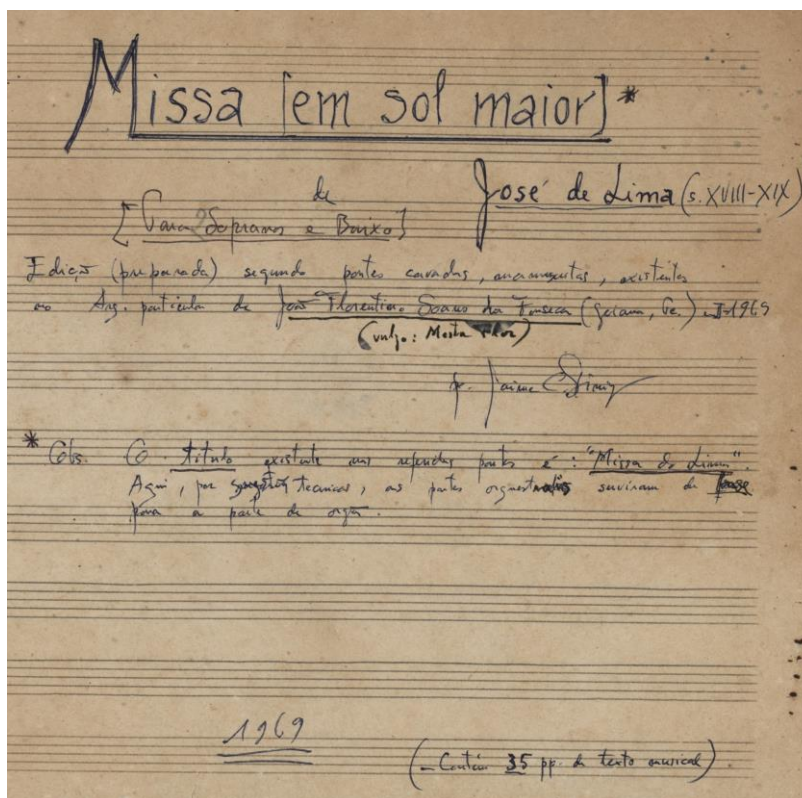 Missa [em sol maior]*
de José de Lima (s. XVIII-XIX)
[Para 2 Sopranos e Baixo]
Edição (preparada) segundo partes cavadas, manuscritas, existentes
no Arq. particular de João Florentino Soares da Fonseca (Goiana, Pe.) 1969
(vulgo: Mestre)
Jaime Diniz
* Obs. O título existente nas referidas partes é: "Missa do Lima".
Aqui, por tecnicas, as partes orquestrais serviram de base
para a parte de orgão.
1969
(- Contém 35 pp. de texto musical)